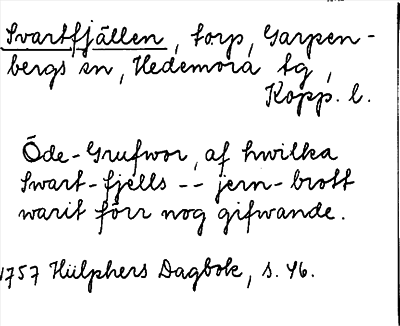 Svartfjällen, torp, Garpen-
bergs sn, Hedemora tg,
Kopp. l.
Öde-Grufwor, af hwilka
Swart-fjells -- jern-brott
warit förr nog gifwande.
1757 Hülphers Dagbok, s. 46.